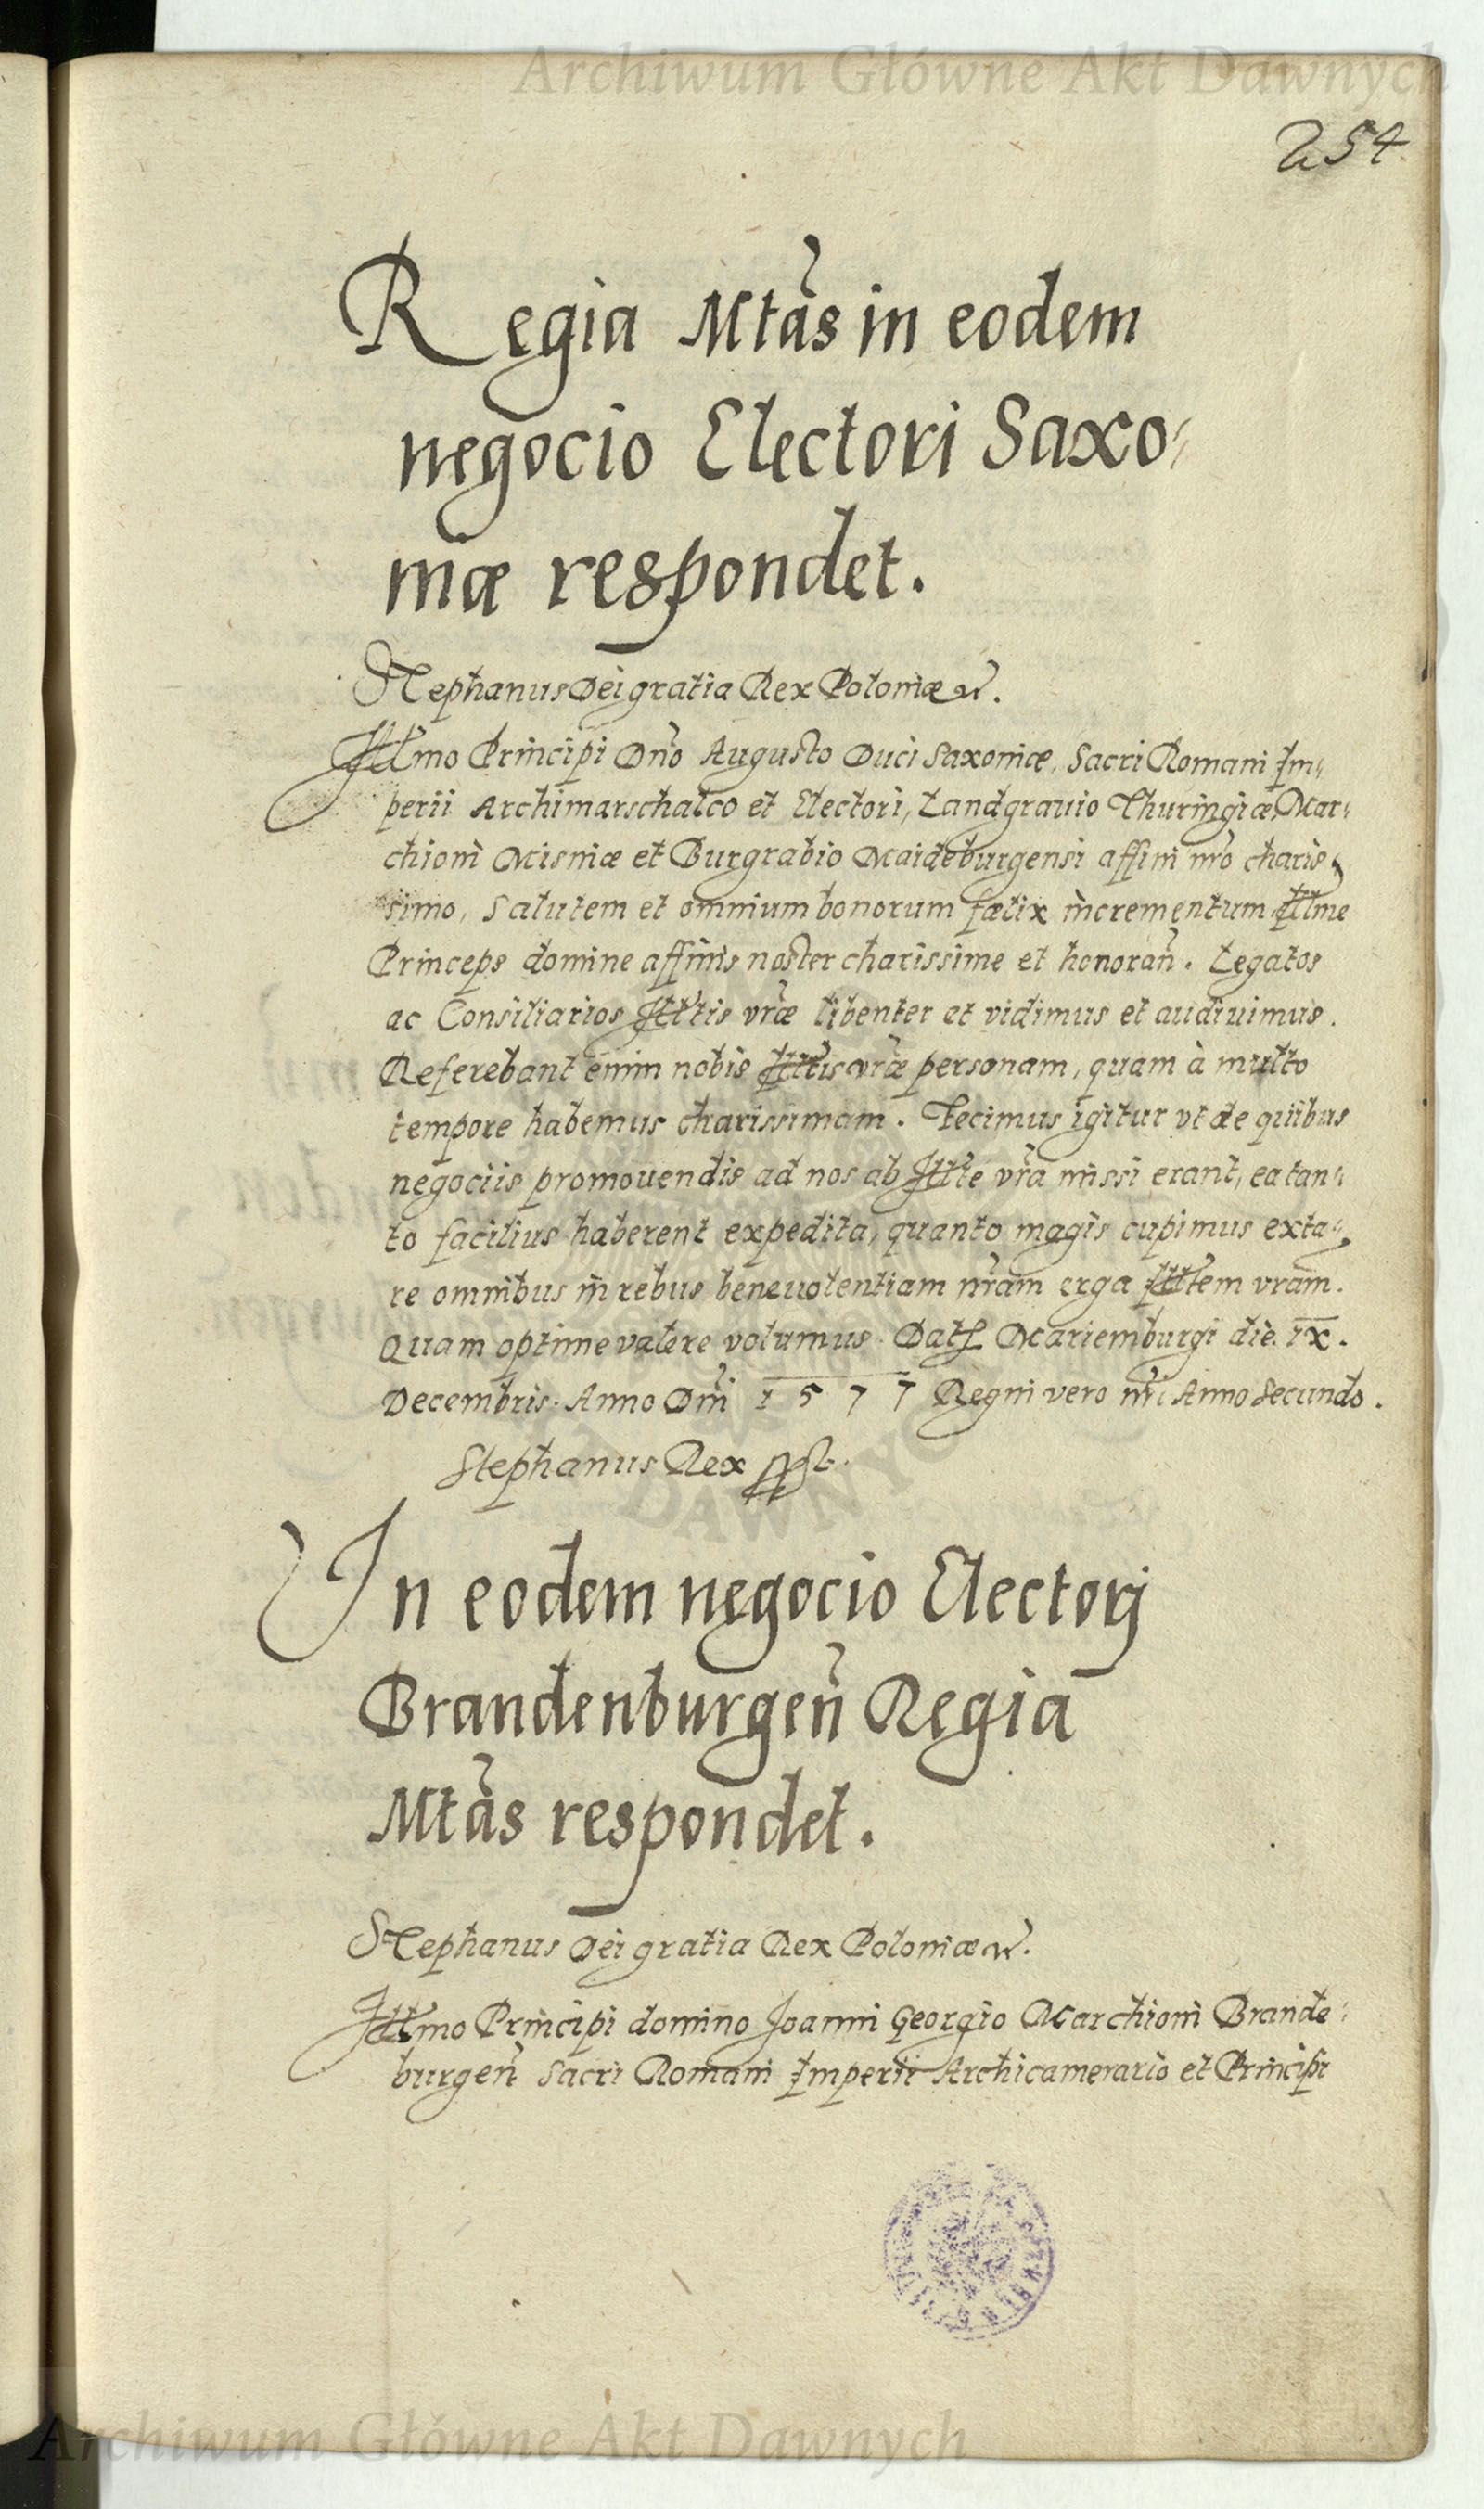 Archiwum Główne Akt Dawnych
254
Regia Mtas in eodem
negocio Electori Saxo-
niæ respondet.
Stephanus Dei gratia Rex Poloniæ etc.
Illmo Principi Dno Augusto Duci Saxoniæ, Sacri Romani Im-
perii Archimarschalco et Electori, Landgrauio Thuringiæ, Mar-
chioni Misniæ et Burgrabio Maideburgensi affini nro charis-
simo, Salutem et omnium bonorum fœlix incrementum Illme
Princeps domine affinis noster charissime et honoran. Legatos
ac Consiliarios Illtis vræ libenter et vidimus et audiuimus.
Referebant enim nobis Illtis vræ personam, quam à multo
tempore habemus charissimam. Fecimus igitur vt de quibus
negociis promouendis ad nos ab Illte vra missi erant, ea tan-
to facilius haberent expedita, quanto magis cupimus exta-
re omnibus in rebus beneuolentiam nram erga Illtem vram.
Quam optime valere volumus. Dat Mariemburgi die IX.
Decembris. Anno Dni 1577 Regni vero nri Anno Secundo.
Stephanus Rex sspt.
In eodem negocio Electorj
Brandenburgen Regia
Mtas respondet.
Stephanus Dei gratia Rex Poloniæ etc.
Illmo Principi domino Joanni Georgio Marchioni Brande-
burgen Sacri Romani Imperii Archicamerario et Principi
Archiwum Główne Akt Dawnych